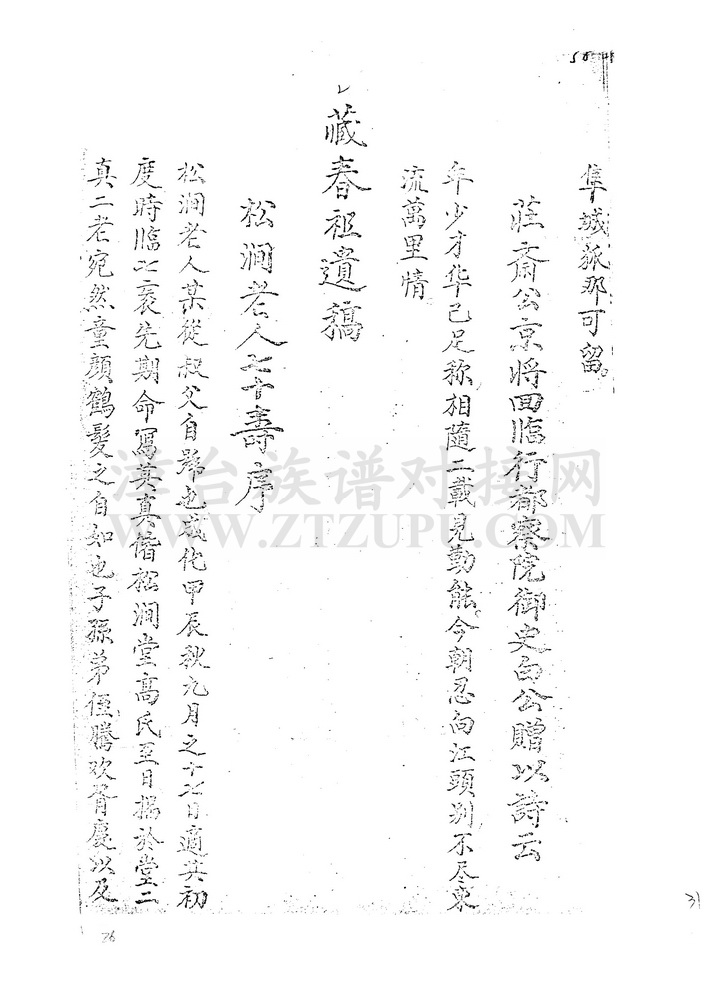 隼城狐那可留。
莊斋公京将回臨行都察院御史白公贈以詩云
年少才华已足称相隨二載見勤能。今朝忍向江頭別不尽東
流萬里情
藏春祖遺稿
松澗老人七十壽序
松澗老人某從叔父自號也成化甲辰秋九月之十七日適其初
度時臨七袠先期命寫其真偕松澗堂高氏至日揭於堂二
真二老宛然童顏鶴髮之自如也子孫弟侄騰欢胥慶以及
漳台族谱对接网
WWW.ZTZUPU.COM
26
31